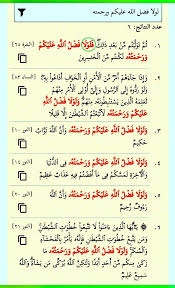 لولا فضل الله عليكم ورحمته
عدد النتائج: ٦
١. ثُمَّ تَوَلَّيْتُم مِّنۢ بَعْدِ ذَٰلِكَ فَلَوْلَا فَضْلُ ٱللَّهِ عَلَيْكُمْ
وَرَحْمَتُهُۥ لَكُنتُم مِّنَ ٱلْخَٰسِرِينَ
(البقرة ٦٤)
٢. وَإِذَا جَآءَهُمْ أَمْرٌ مِّنَ ٱلْأَمْنِ أَوِ ٱلْخَوْفِ أَذَاعُوا۟ بِهِۦ
وَلَوْ رَدُّوهُ إِلَى ٱلرَّسُولِ وَإِلَىٰٓ أُو۟لِى ٱلْأَمْرِ مِنْهُمْ
لَعَلِمَهُ ٱلَّذِينَ يَسْتَنۢبِطُونَهُۥ مِنْهُمْ وَلَوْلَا فَضْلُ ٱللَّهِ
عَلَيْكُمْ وَرَحْمَتُهُۥ لَٱتَّبَعْتُمُ ٱلشَّيْطَٰنَ إِلَّا قَلِيلًا
(النساء ٨٣)
٣. وَلَوْلَا فَضْلُ ٱللَّهِ عَلَيْكُمْ وَرَحْمَتُهُۥ وَأَنَّ ٱللَّهَ تَوَّابٌ
حَكِيمٌ
(النور ١٠)
٤. وَلَوْلَا فَضْلُ ٱللَّهِ عَلَيْكُمْ وَرَحْمَتُهُۥ فِى ٱلدُّنْيَا
وَٱلْءَاخِرَةِ لَمَسَّكُمْ فِى مَآ أَفَضْتُمْ فِيهِ عَذَابٌ عَظِيمٌ
(النور ١٤)
٥. وَلَوْلَا فَضْلُ ٱللَّهِ عَلَيْكُمْ وَرَحْمَتُهُۥ وَأَنَّ ٱللَّهَ
رَءُوفٌ رَّحِيمٌ
(النور ٢٠)
٦. ۞ يَٰٓأَيُّهَا ٱلَّذِينَ ءَامَنُوا۟ لَا تَتَّبِعُوا۟ خُطُوَٰتِ ٱلشَّيْطَٰنِ
وَمَن يَتَّبِعْ خُطُوَٰتِ ٱلشَّيْطَٰنِ فَإِنَّهُۥ يَأْمُرُ بِٱلْفَحْشَآءِ
وَٱلْمُنكَرِ وَلَوْلَا فَضْلُ ٱللَّهِ عَلَيْكُمْ وَرَحْمَتُهُۥ مَا
زَكَىٰ مِنكُم مِّنْ أَحَدٍ أَبَدًا وَلَٰكِنَّ ٱللَّهَ يُزَكِّى مَن يَشَآءُ وَٱللَّهُ
سَمِيعٌ عَلِيمٌ
(النور ٢١)